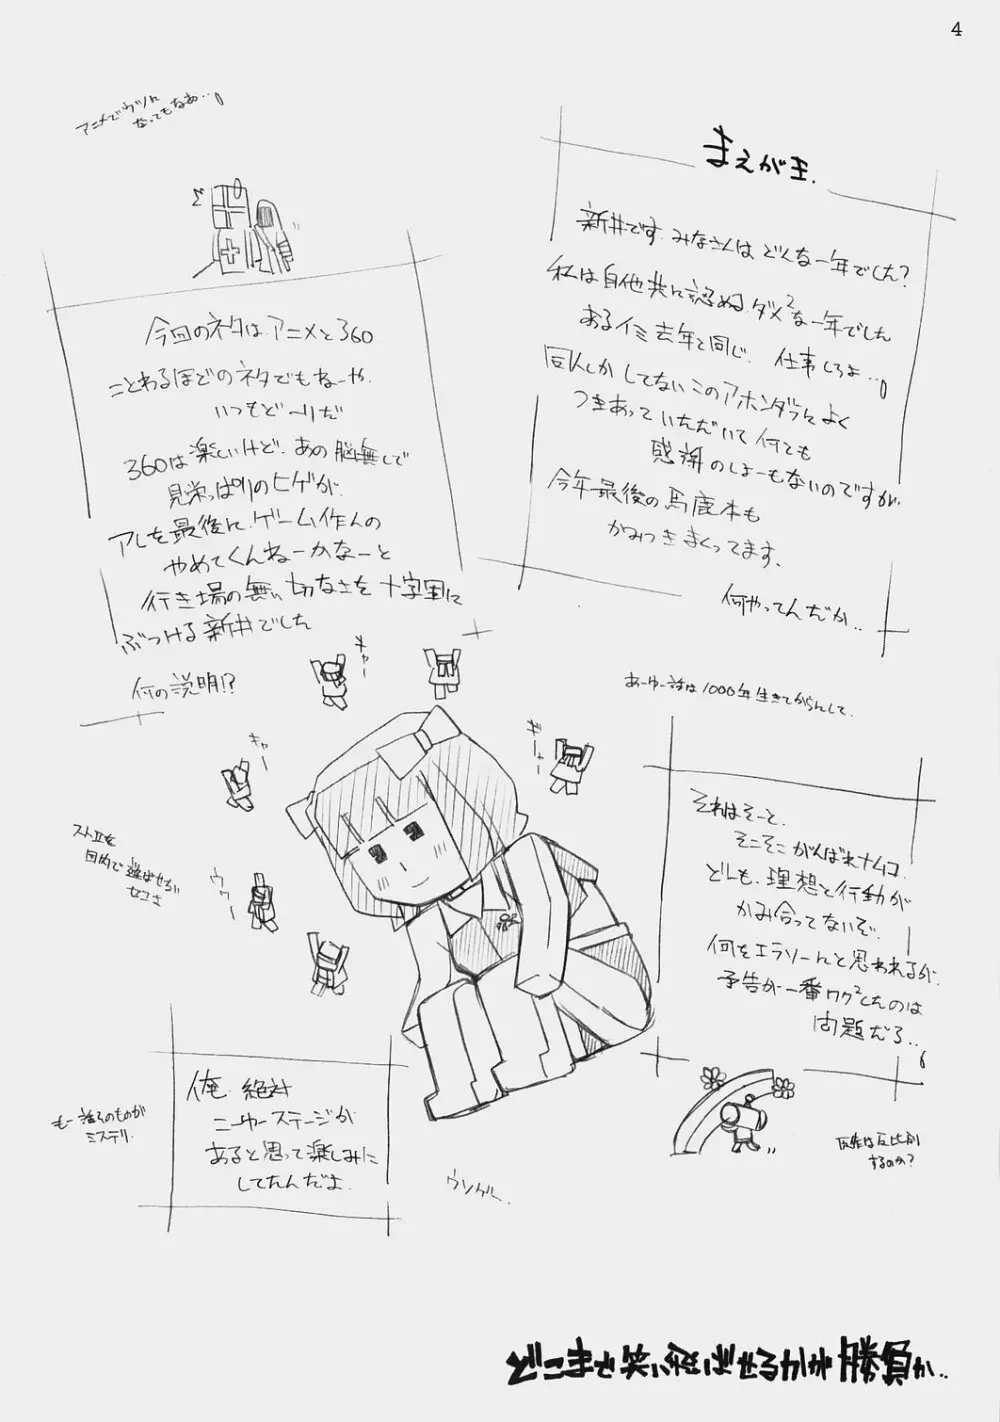 4
まえが王.
新井です. みなさんは どんな一年でした?
私は自他共に認める ダメ²な一年でした
あるイミ去年と同じ. 仕事しろよ…。
同人しか してない このアホンダラに よく
つきあって いただいて 何とも
感謝のしよーもないのですが.
今年最後の馬鹿本も
かみつきまくってます.
何やってんだか..
アニメでウツに
なってもなあ…。
今回のネタは アニメと360
ことわるほどの ネタでもねーや.
いつもど〜りだ
360は 楽しいけど. あの 脳無しで
見栄っぱりの ヒゲが.
アレを最後に ゲーム作んの
やめてくんねーかなーと
行き場の無い 切なさを 十字軍に
ぶつける 新井でした
何の説明!?
キャー
キャー
ギャー
ウゥー
ストIIを
目的で 遊ばせる
セコさ
あーゆー話は 1000年生きてからんして.
それはそーと.
そこそこ がんばれナムコ.
どーも. 理想と行動が
かみ合ってないぞ.
何をエラソーにと 思われるが.
予告が一番ワク²したのは
問題だろ..。
俺. 絶対
ニューステージが
あると思って 楽しみに
してたんだよ.
もー 語るのものが
ミステリ.
ウソゲー.
反比例
するのか?
どこまで 笑い飛ばせるかが 勝負か..